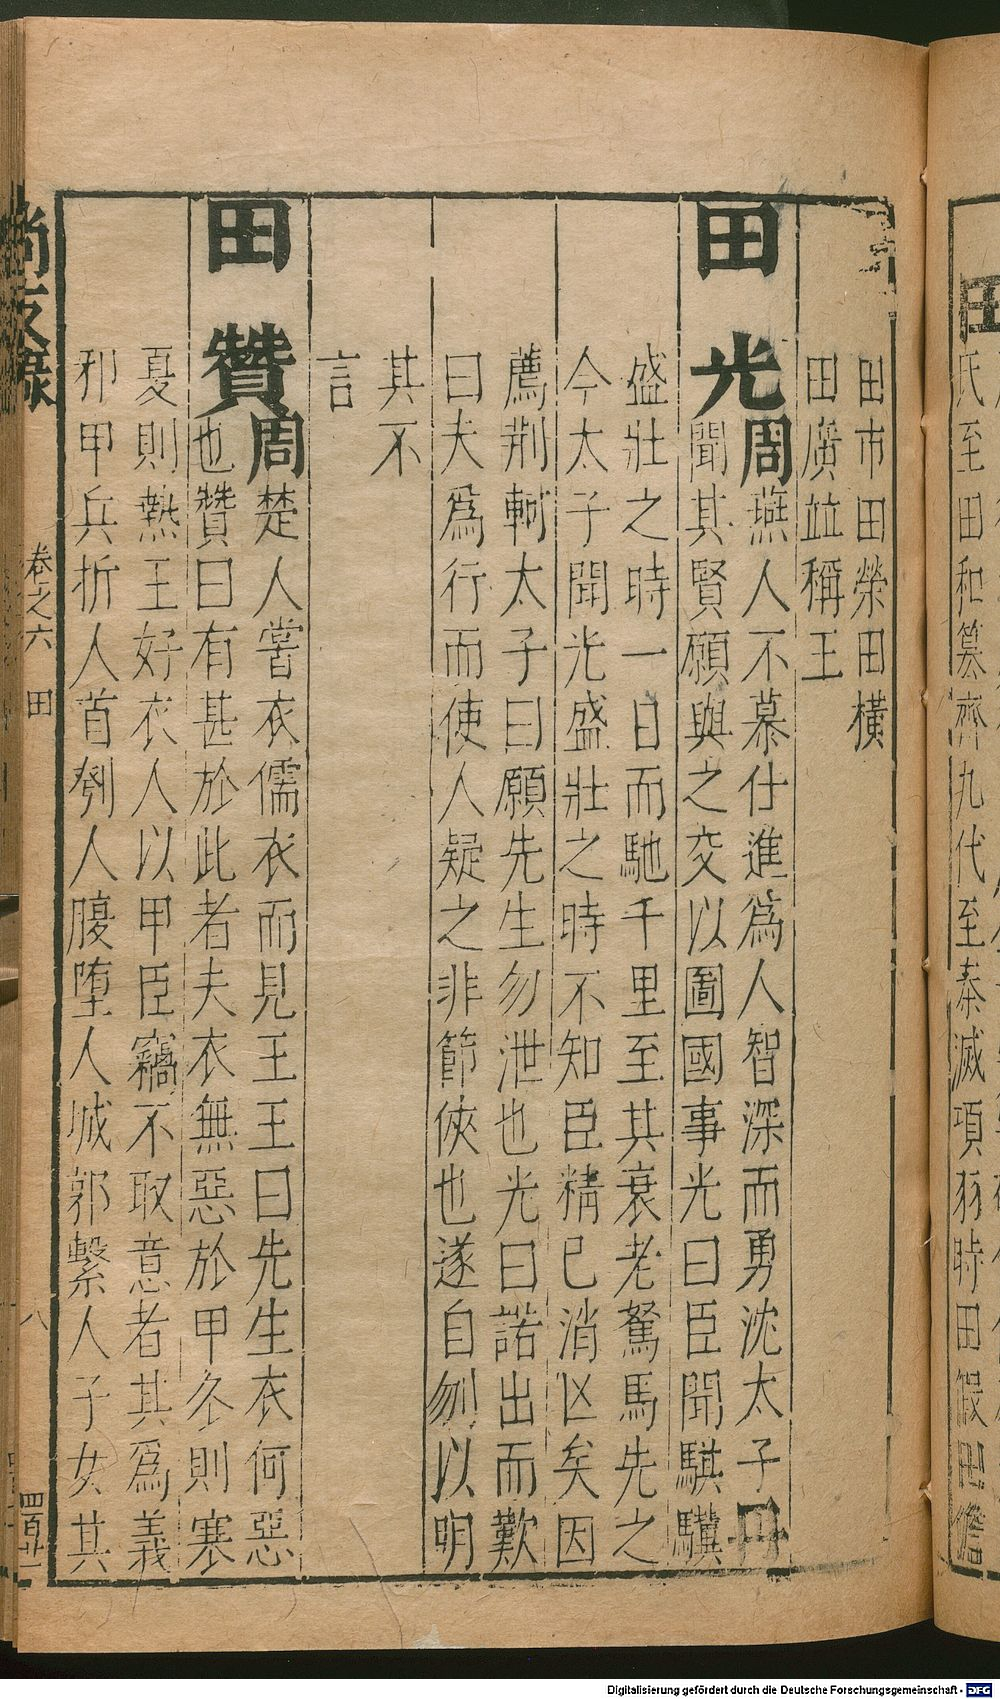 氏至田和篡齊九代至秦滅項羽時田假田儋
田市田榮田橫
田廣並稱王
田光周燕人不慕仕進爲人智深而勇沈太子丹
聞其賢願與之交以圖國事光曰臣聞騏驥
盛壯之時一日而馳千里至其衰老駑馬先之
今太子聞光盛壯之時不知臣精已消亾矣因
薦荆軻太子曰願先生勿泄也光曰諾出而歎
曰夫爲行而使人疑之非節俠也遂自刎以明
其不
言
田贊周楚人嘗衣儒衣而見王王曰先生衣何惡
也贊曰有甚於此者夫衣無惡於甲冬則寒
夏則熱王好衣人以甲臣竊不取意者其爲義
邪甲兵折人首刳人腹墮人城郭繫人子女其
尚友錄
卷之六 田
八
Digitalisierung gefördert durch die Deutsche Forschungsgemeinschaft - DFG